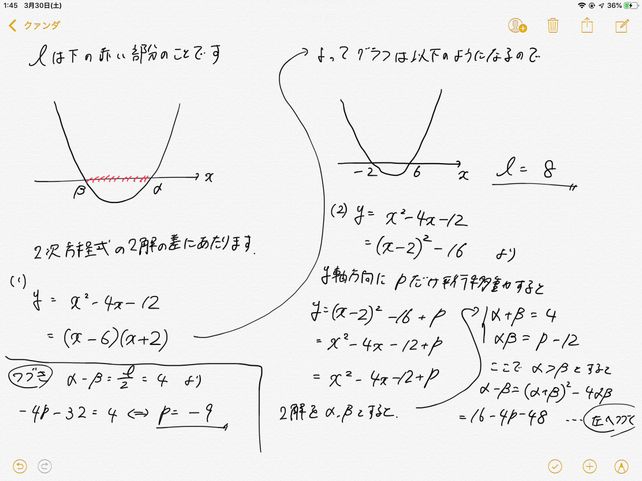 1:45 3月30日(土)
36%
クァンダ
lは下の赤い部分のことです
β α x
2次方程式の2解の差にあたります.
(1)
y = x²-4x-12
= (x-6)(x+2)
よってグラフは以下のようになるので
-2 6 x
l = 8
(2) y = x²-4x-12
= (x-2)²-16 より
y軸方向にpだけ平行移動すると
y=(x-2)²-16+p
= x²-4x-12+p
= x²-4x-12+p
2解をα,βとすると.
α+β = 4
αβ = p-12
ここでα>βとすると
α-β=(α+β)²-4αβ
=16-4p-48 … 左へつづく
つづき α-β = l/2 = 4 より
-4p-32 = 4 ⇔ p = -9